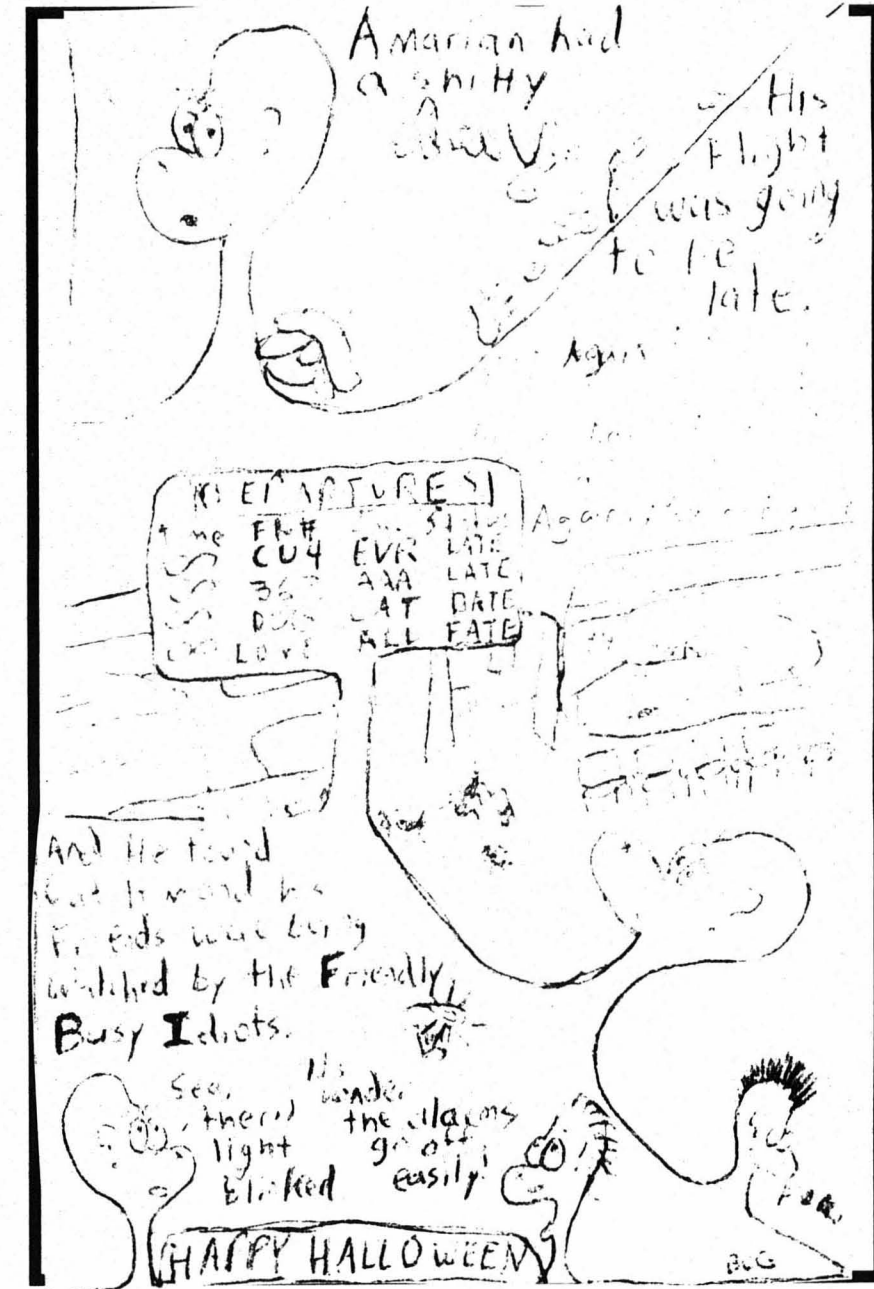 A Marian had
a shitty
His
Flight
was going
to be
late.
Again
DEPARTURES
time FLT# Status
CU4 EVR LATE
AAA LATE
CAT DATE
LOVE ALL FATE
And He found
out him and his
Friends were being
watched by the Friendly
Busy Idiots.
See,
there's
light
blinked
No
wonder
the alarms
go off
easily!
HAPPY HALLOWEEN
BUG